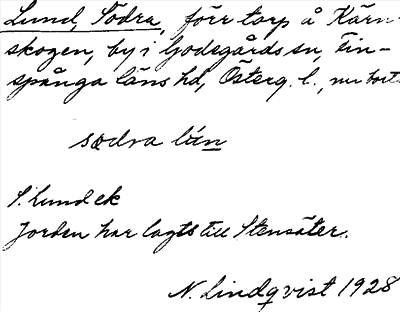 Lund, Södra, förr torp å Kärn-
skogen, by i Godegårds sn, Fin-
spånga läns hd, Österg. l., nu bort-
södra lun
S. Lund ek
Jorden har lagts till Stensäter.
N. Lindqvist 1928